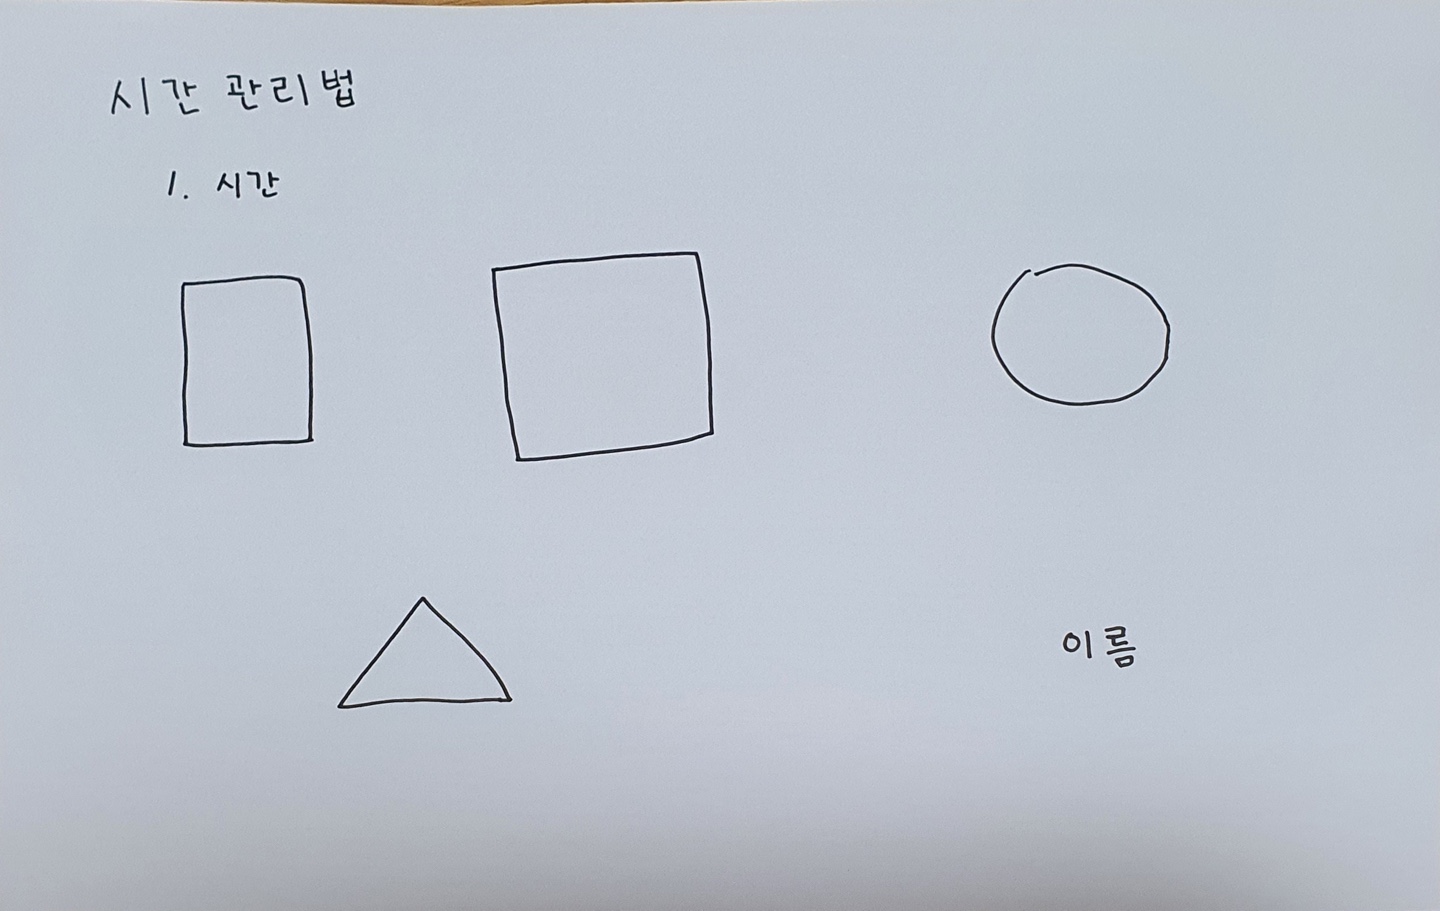 시간 관리법
1. 시간
이름